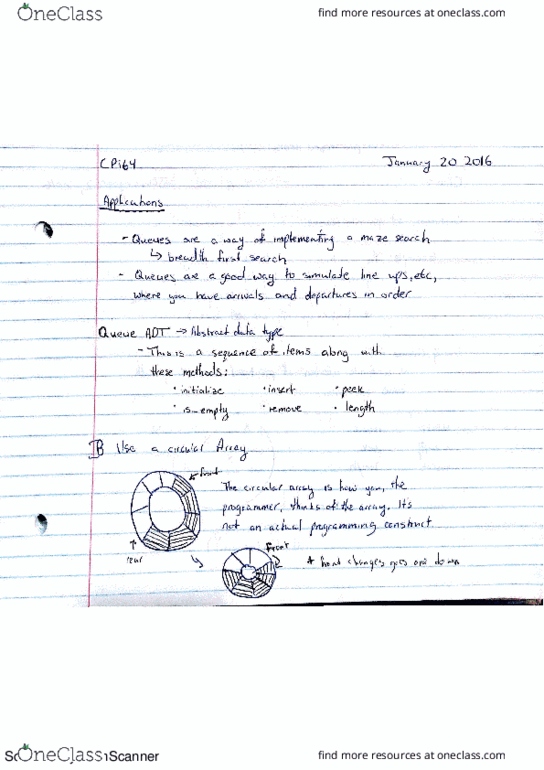 OneClass
find more resources at oneclass.com
CP164
January 20 2016
Applications
- Queues are a way of implementing a maze search
↳ breadth first search
- Queues are a good way to simulate line ups, etc,
where you have arrivals and departures in order
Queue ADT → Abstract data type
- This is a sequence of items along with
these methods:
• initialize • insert • peek
• is_empty • remove • length
B Use a circular Array
front
The circular array is how you, the
programmer, thinks of the array. It's
not an actual programming construct
rear
front
* front changes goes one down
OneClass
Scanner
find more resources at oneclass.com